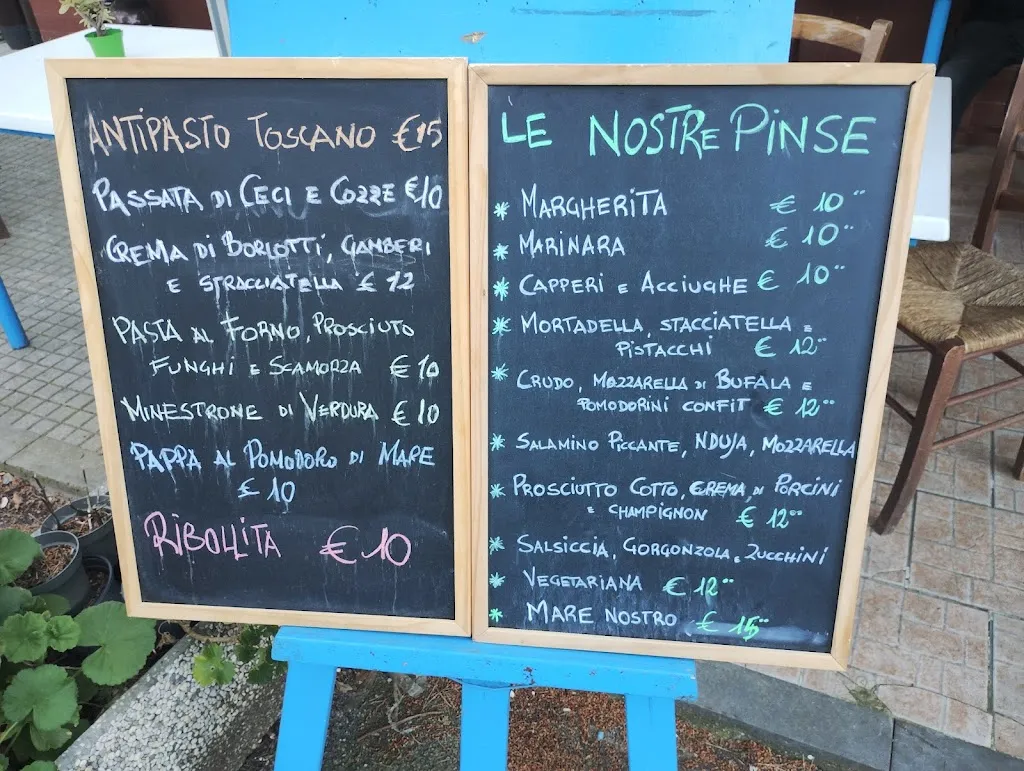 ANTIPASTO TOSCANO €15
PASSATA DI CECI E COZZE €10
CREMA DI BORLOTTI, GAMBERI
E STRACCIATELLA € 12
PASTA AL FORNO, PROSCIUTO
FUNGHI E SCAMORZA € 10
MINESTRONE DI VERDURA € 10
PAPPA AL POMODORO DI MARE
€ 10
RIBOLLITA € 10
LE NOSTRE PINSE
* MARGHERITA € 10--
* MARINARA € 10--
* CAPPERI E ACCIUGHE € 10--
* MORTADELLA, STACCIATELLA E
PISTACCHI € 12--
* CRUDO, MOZZARELLA DI BUFALA E
POMODORINI CONFIT € 12--
* SALAMINO PICCANTE, NDUJA, MOZZARELLA
* PROSCIUTTO COTTO, CREMA DI PORCINI
E CHAMPIGNON € 12--
* SALSICCIA, GORGONZOLA E ZUCCHINI
* VEGETARIANA € 12--
* MARE NOSTRO € 15--